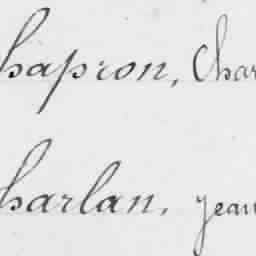 hapron, Char
harlan, jean